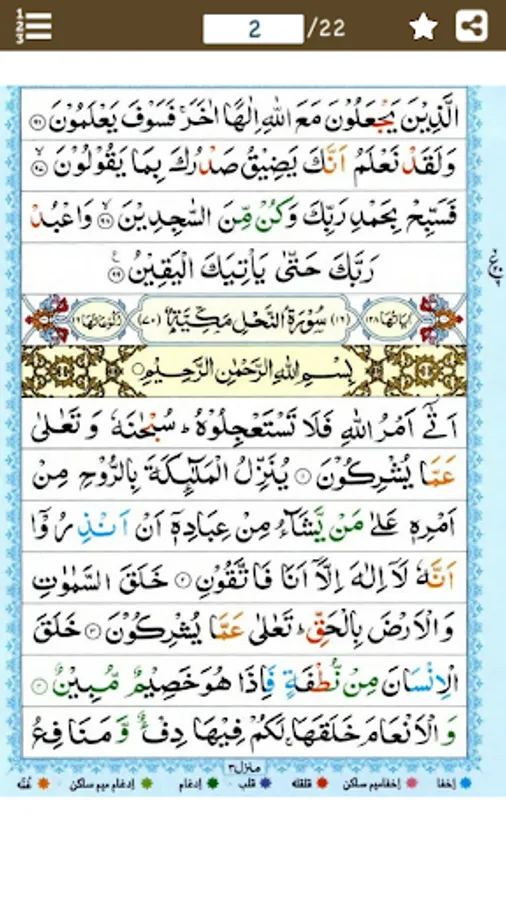 2 /22
الَّذِيْنَ يَجْعَلُوْنَ مَعَ اللّٰهِ اِلٰهًا اٰخَرَ ۚ فَسَوْفَ يَعْلَمُوْنَ ﴿۹۶﴾
وَلَقَدْ نَعْلَمُ اَنَّكَ يَضِيْقُ صَدْرُكَ بِمَا يَقُوْلُوْنَ ﴿۹۷﴾
فَسَبِّحْ بِحَمْدِ رَبِّكَ وَكُنْ مِّنَ السّٰجِدِيْنَ ﴿۹۸﴾ وَاعْبُدْ
رَبَّكَ حَتّٰى يَاْتِيَكَ الْيَقِيْنُ ﴿۹۹﴾
اٰيَاتُهَا ۱۲۸ (۱۶) سُوْرَةُ النَّحْلِ مَكِّيَّةٌ (۷۰) رُكُوْعَاتُهَا ۱۶
بِسْمِ اللّٰهِ الرَّحْمٰنِ الرَّحِيْمِ
اَتٰۤى اَمْرُ اللّٰهِ فَلَا تَسْتَعْجِلُوْهُ ؕ سُبْحٰنَهٗ وَتَعٰلٰى
عَمَّا يُشْرِكُوْنَ ﴿۱﴾ يُنَزِّلُ الْمَلٰٓئِكَةَ بِالرُّوْحِ مِنْ
اَمْرِهٖ عَلٰى مَنْ يَّشَآءُ مِنْ عِبَادِهٖۤ اَنْ اَنْذِرُوْۤا
اَنَّهٗ لَاۤ اِلٰهَ اِلَّاۤ اَنَا فَاتَّقُوْنِ ﴿۲﴾ خَلَقَ السَّمٰوٰتِ
وَالْاَرْضَ بِالْحَقِّ ؕ تَعٰلٰى عَمَّا يُشْرِكُوْنَ ﴿۳﴾ خَلَقَ
الْاِنْسَانَ مِنْ نُّطْفَةٍ فَاِذَا هُوَ خَصِيْمٌ مُّبِيْنٌ ﴿۴﴾
وَالْاَنْعَامَ خَلَقَهَا ۚ لَكُمْ فِيْهَا دِفْءٌ وَّمَنَافِعُ
منزل۳
إخفا إخفامیم ساکن قلقله قلب إدغام إدغام میم ساکن غُنّه